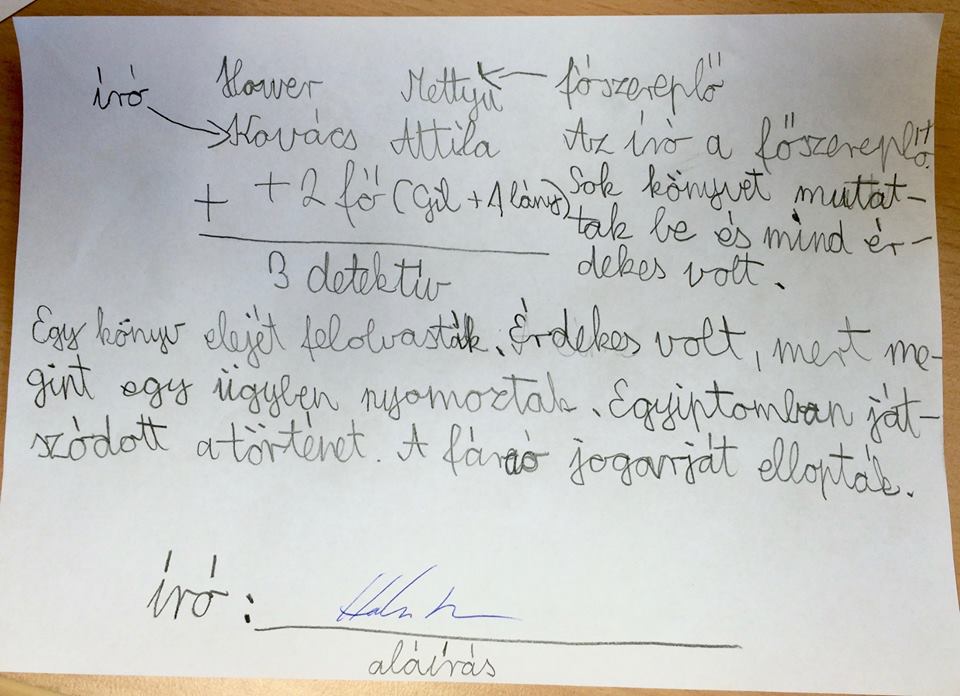 író Hower Mettyű főszereplő
Kovács Attila Az író a főszereplő.
+ +2 fő (Gil + A lány) Sok könyvet mutat-
tak be és mind ér-
3 detektív dekes volt.
Egy könyv elejét felolvasták. Érdekes volt, mert me-
gint egy ügyben nyomoztak. Egyiptomban ját-
szódott a történet. A fáraó jogarját ellopták.
író:
aláírás